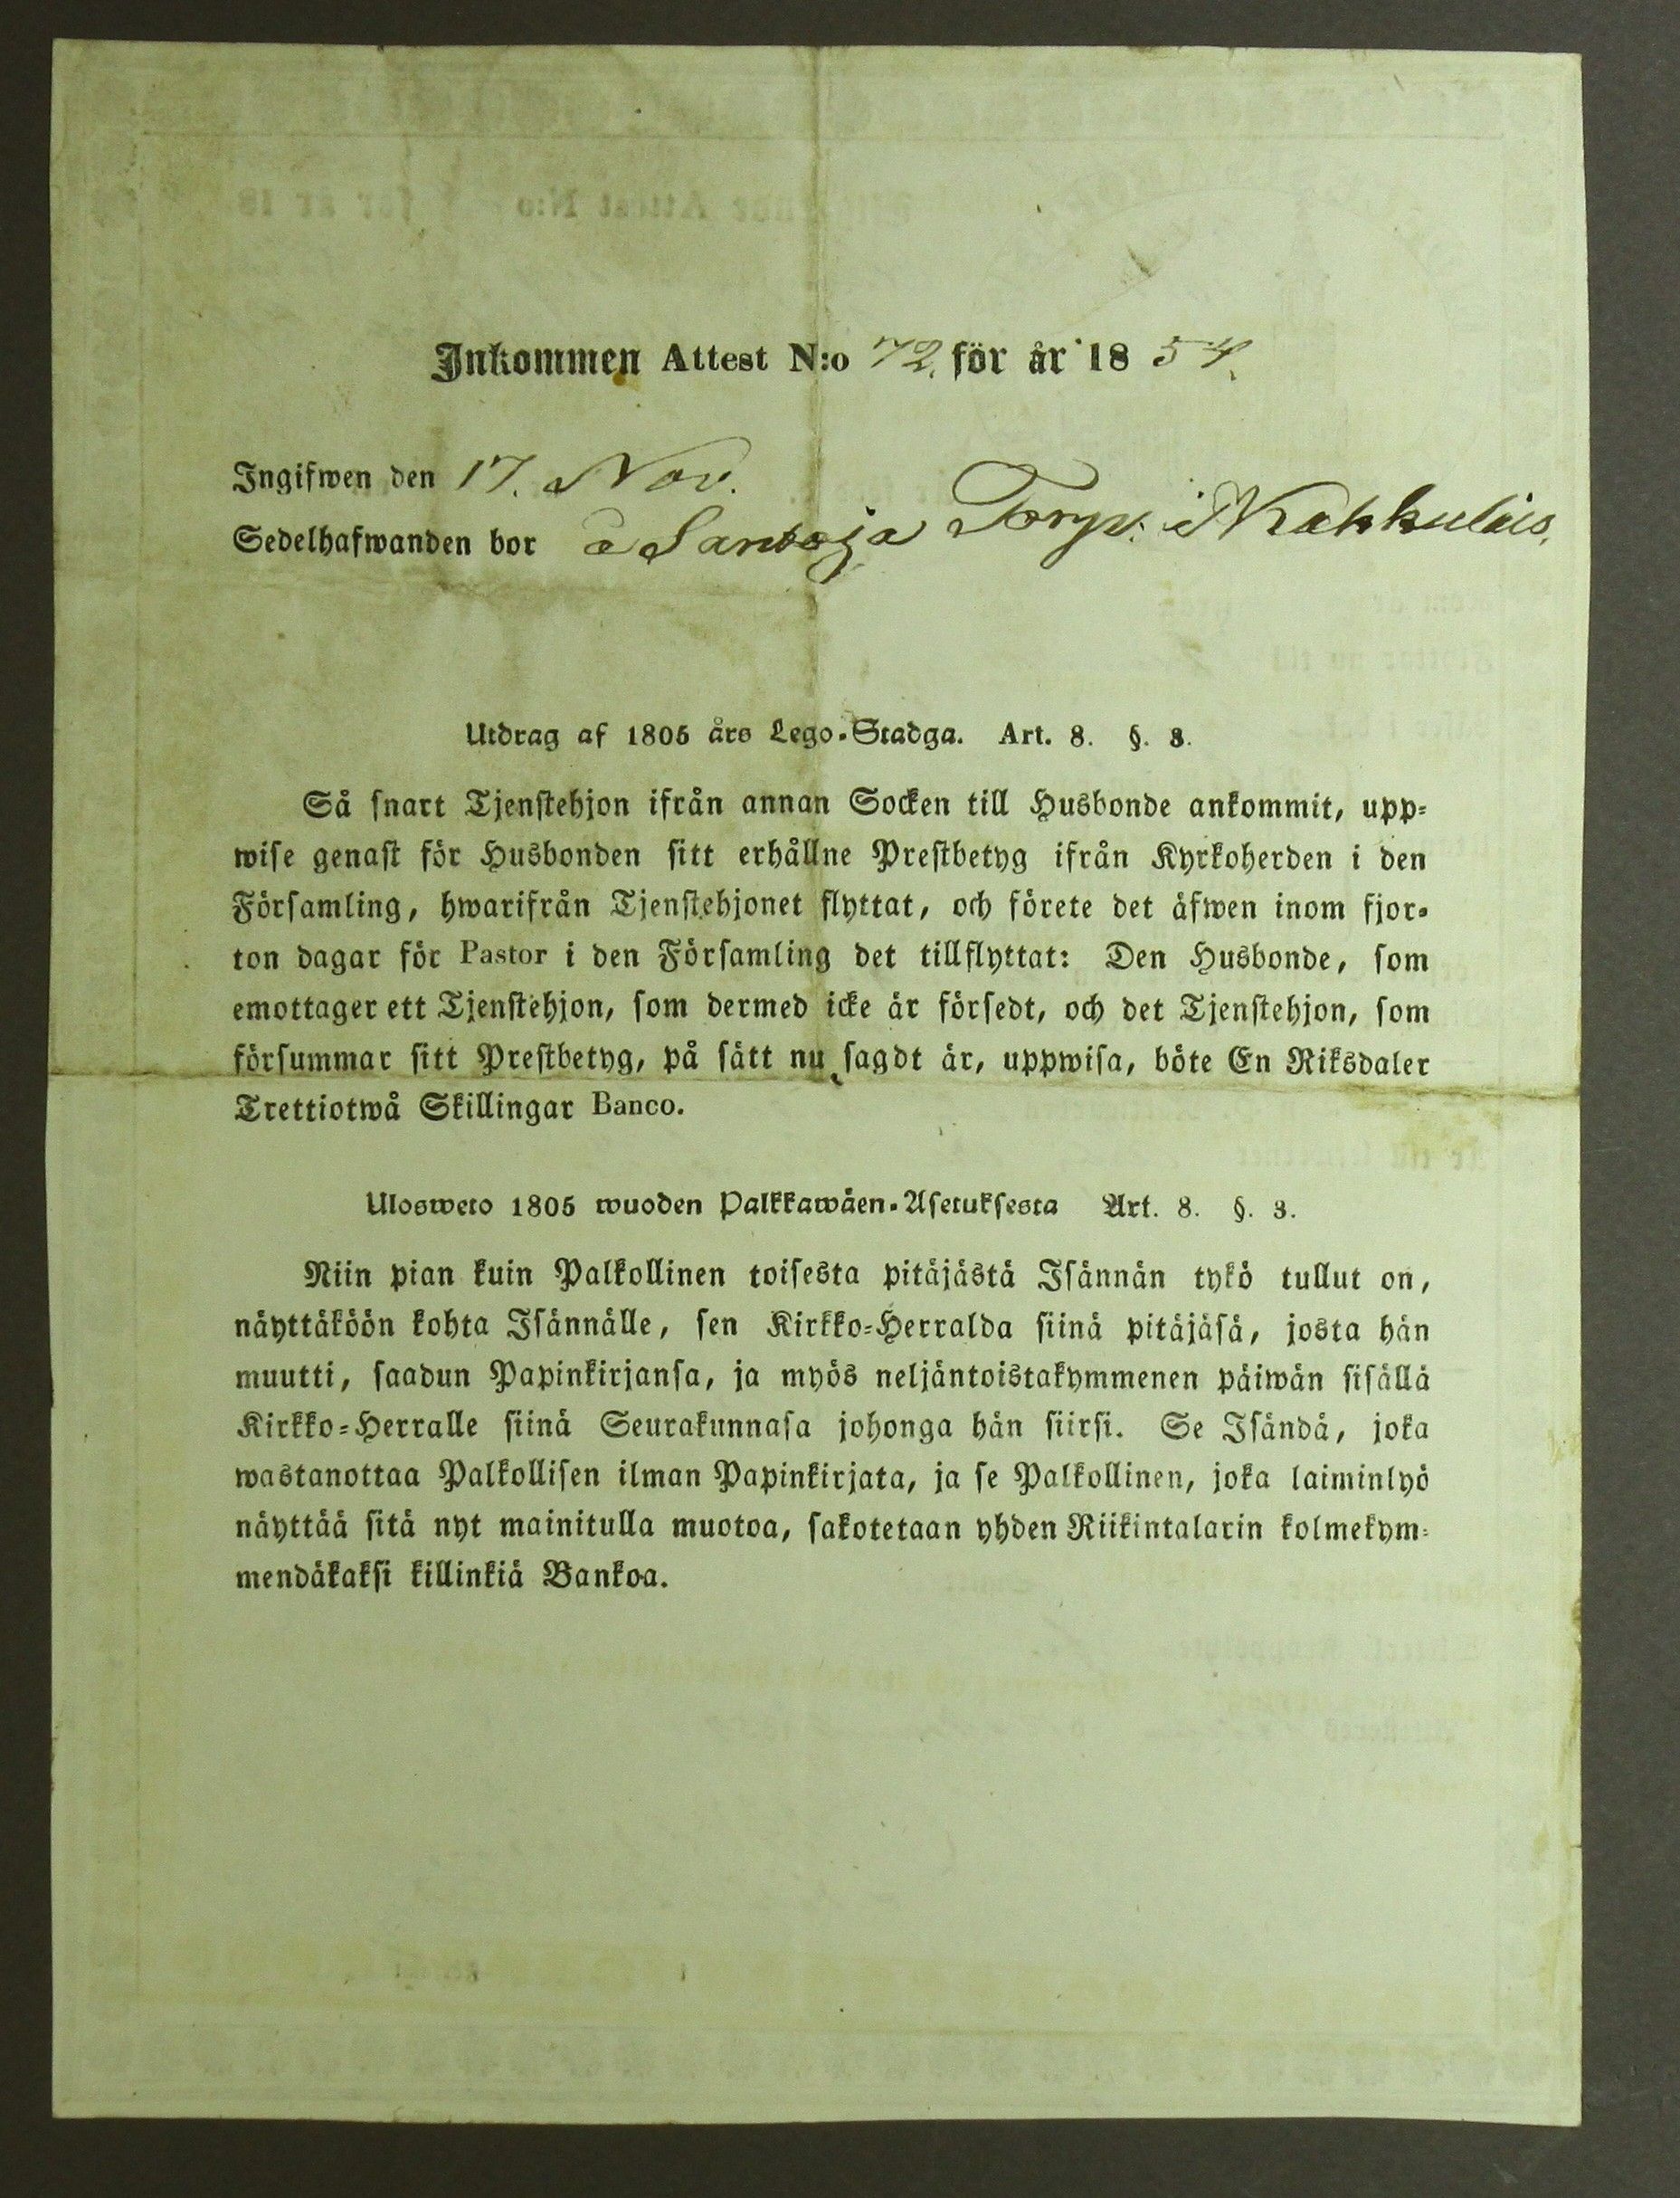 Inkommen Attest N:o 72. för år 1854.
Ingifwen den 17. Nov.
Sedelhafwanden bor å Santoja Torp. i Kakkulais.
Utdrag af 1805 års Lego-Stadga. Art. 8. §. 3.
Så snart Tjenstehjon ifrån annan Socken till Husbonde ankommit, upp-
wise genast för Husbonden sitt erhållne Prestbetyg ifrån Kyrkoherden i den
Församling, hwarifrån Tjenstehjonet flyttat, och förete det äfwen inom fjor-
ton dagar för Pastor i den Församling det tillflyttat: Den Husbonde, som
emottager ett Tjenstehjon, som dermed icke är försedt, och det Tjenstehjon, som
försummar sitt Prestbetyg, på sätt nu sagdt är, uppwisa, böte En Riksdaler
Trettiotwå Skillingar Banco.
Ulosweto 1805 wuoden Palkkawäen-Asetuksesta Art. 8. §. 3.
Niin pian kuin Palkollinen toisesta pitäjästä Isännän tykö tullut on,
näyttäköön kohta Isännälle, sen Kirkko-Herralda siinä pitäjäsä, josta hän
muutti, saadun Papinkirjansa, ja myös neljäntoistakymmenen päiwän sisällä
Kirkko-Herralle siinä Seurakunnasa johonga hän siirsi. Se Isändä, joka
wastanottaa Palkollisen ilman Papinkirjata, ja se Palkollinen, joka laiminlyö
näyttää sitä nyt mainitulla muotoa, sakotetaan yhden Riikintalarin kolmekym-
mendäkaksi killinkiä Bankoa.